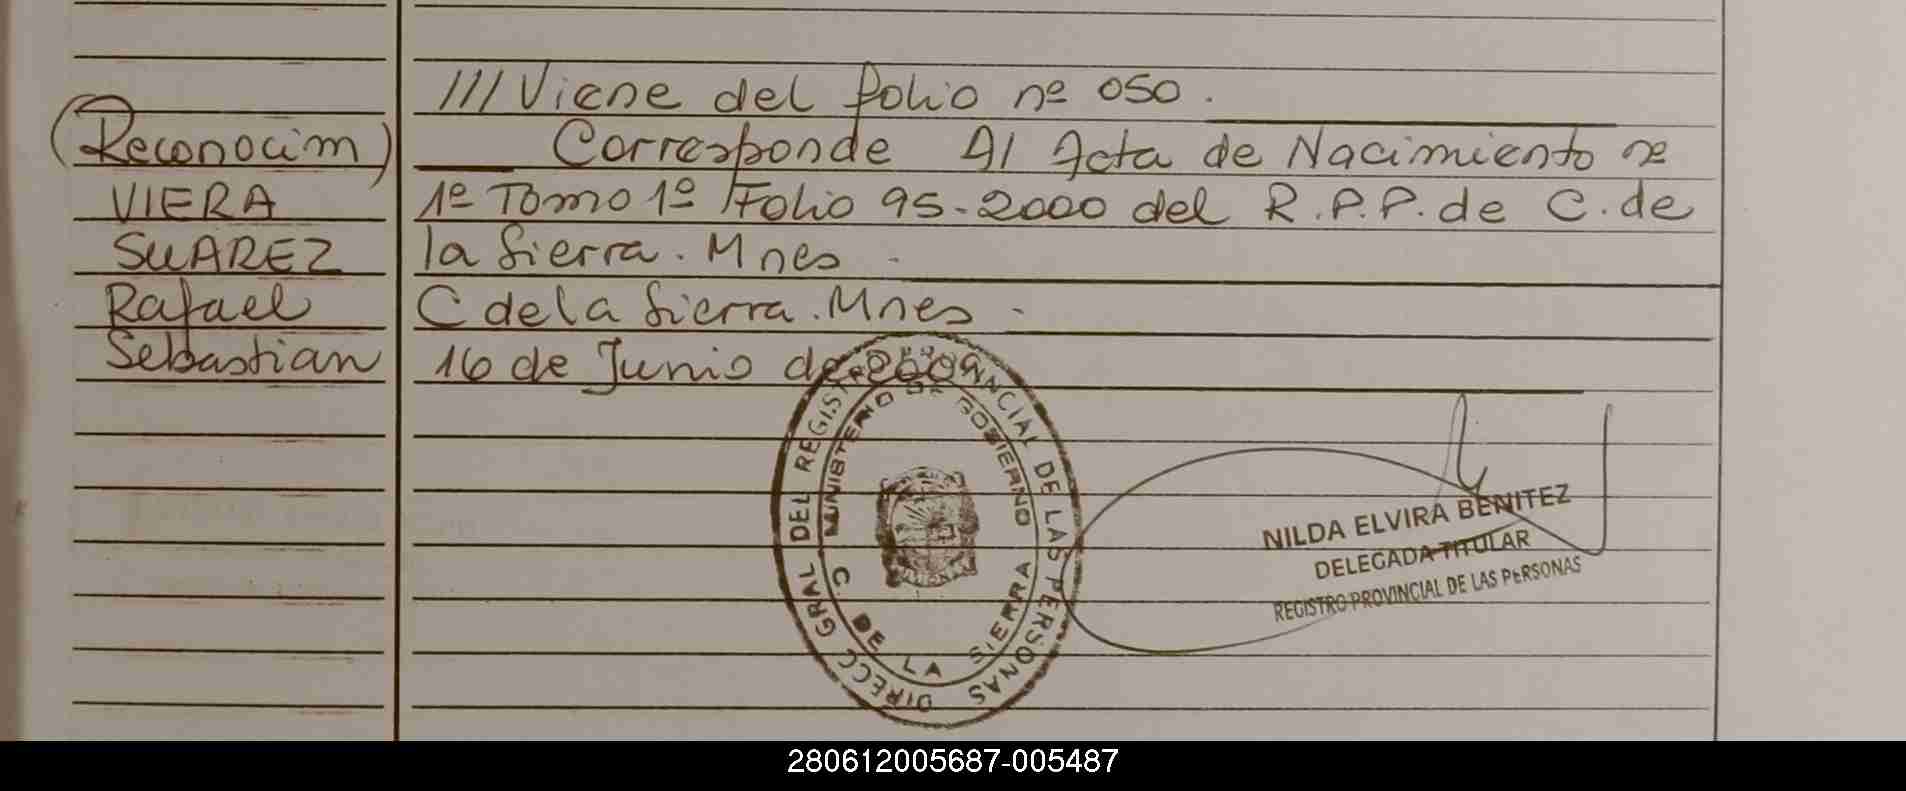 ///Viene del folio nº 050.
(Reconocim) Corresponde Al Acta de Nacimiento nº
VIERA 1º Tomo 1º Folio 95-2000 del R.P.P. de C. de
SUAREZ la Sierra. Mnes.
Rafael C de la Sierra. Mnes.
Sebastian 16 de Junio de 2009
DIRECC GRAL DEL REGISTRO PROVINCIAL DE LAS PERSONAS
MINISTERIO DE GOBIERNO
C. DE LA SIERRA
NILDA ELVIRA BENITEZ
DELEGADA TITULAR
REGISTRO PROVINCIAL DE LAS PERSONAS
280612005687-005487